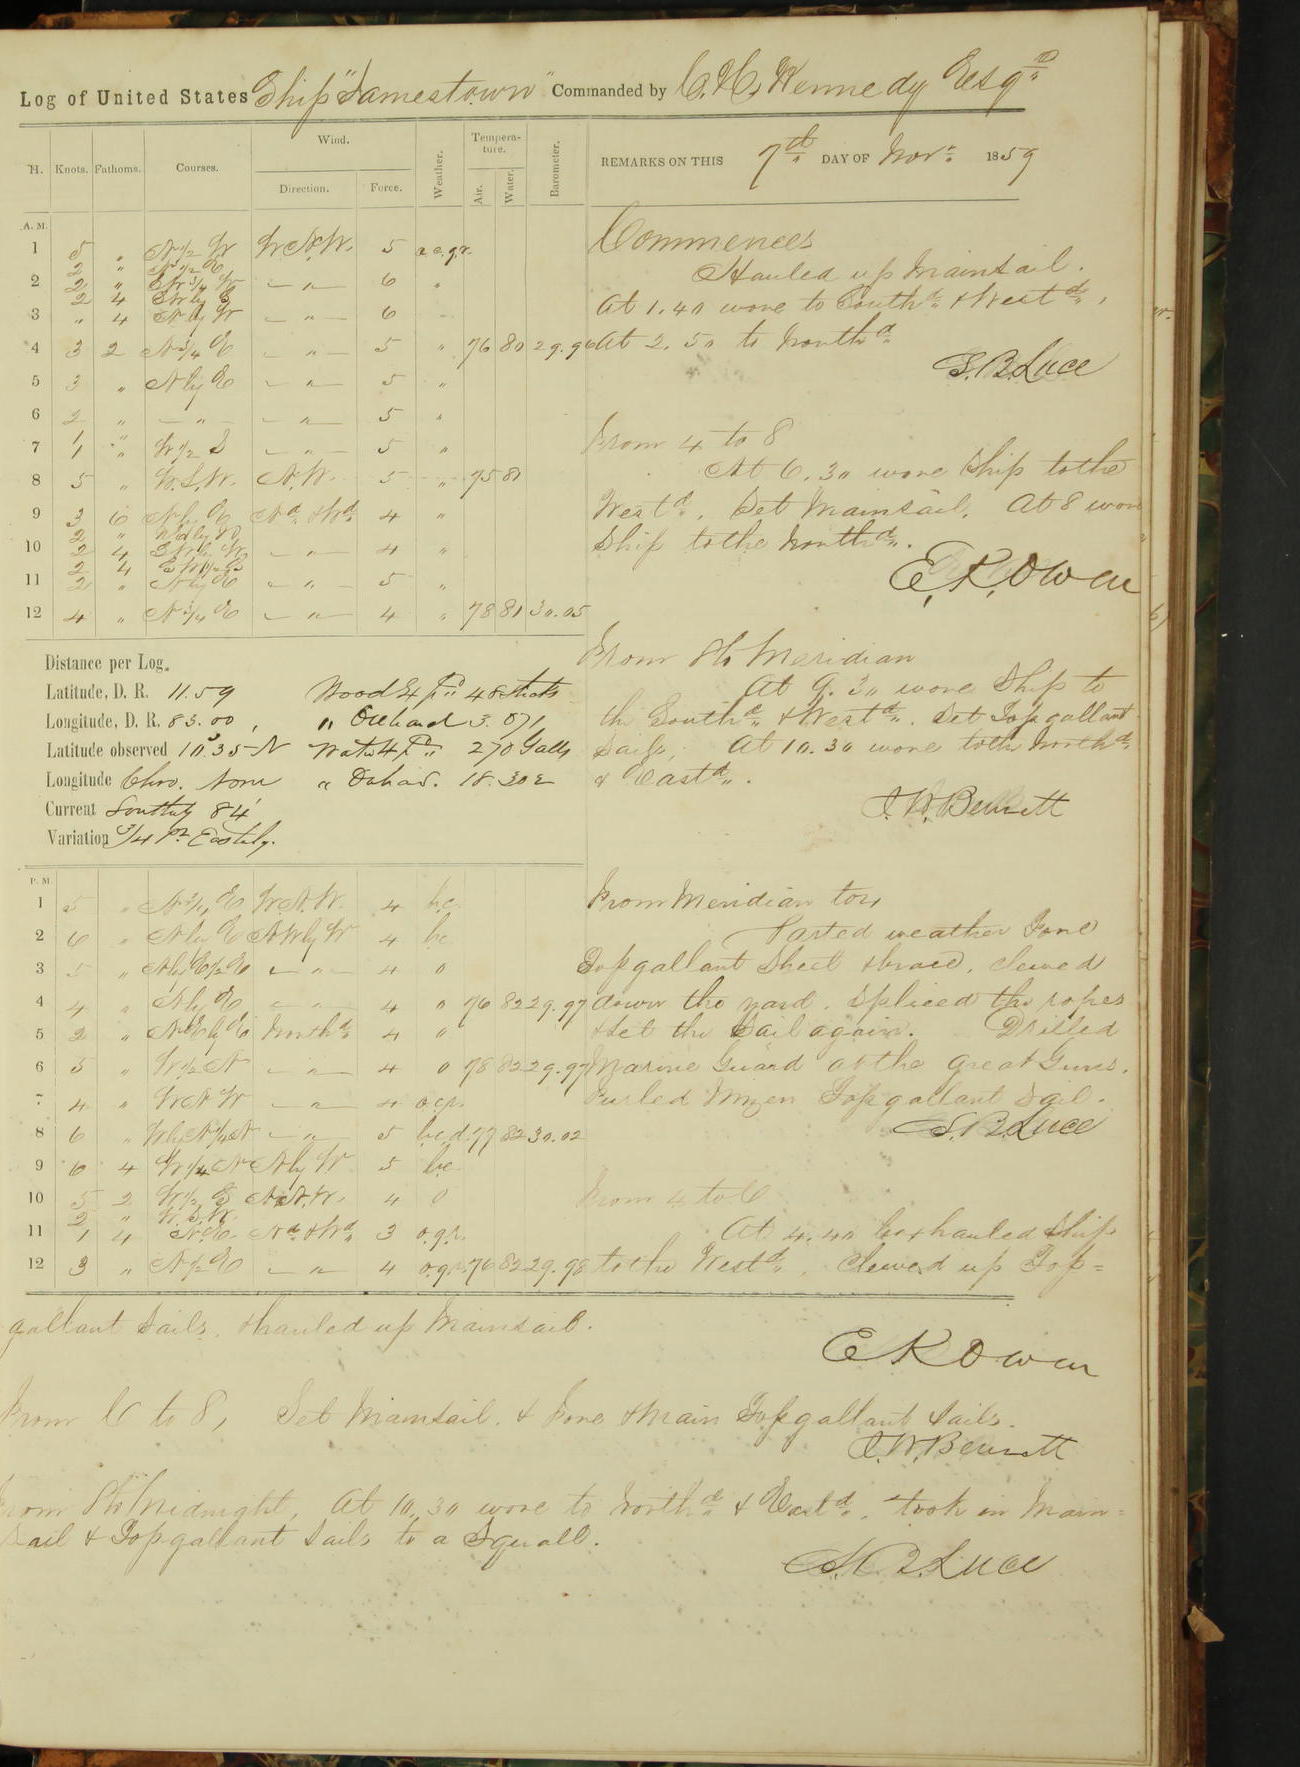 Log of United States Ship "Jamestown" Commanded by C. H. Kennedy Esqr
H. Knots. Fathoms. Courses. Wind. Direction. Force. Weather. Tempera-ture. Air. Water. Barometer. REMARKS ON THIS 7th DAY OF Novr 1859
A. M.
1 5 " N 1/2 W W.N.W. 5 o.c.q.r.
2 " N 1/2 E
2 2 " — " — 6 "
2 4
3 " 4 N by W — " — 6
4 3 2 N 3/4 E — " — 5 " 76 80 29.96
5 3 " N by E — " — 5 "
6 2 " — " — — " — 5 "
1 "
7 1 " W 1/2 S — " — 5 "
8 5 " W.S.W. N.W. 5 " 75 81
9 3 6 N by E Nd & Wd 4 "
2 "
10 2 4 — " — 4 "
2 4
11 2 " N by E — " — 5 "
12 4 " N 3/4 E — " — 4 " 78 81 30.05
Commences
Hauled up Mainsail.
At 1.40 wore to Southd & Westd,
At 2.50 to Northd
S. B. Luce
From 4 to 8
At 6.30 wore Ship to the
Westd. Set Mainsail. At 8 wore
Ship to the Northd.
E. K. Owen
From 8 to Meridian
At 9.30 wore Ship to
the Southd & Westd. Set Topgallant
Sails. At 10.30 wore to the Northd
& Eastd.
J. W. Bennett
Distance per Log.
Latitude, D. R. 11.59 Wood Expd 48 sticks
Longitude, D. R. 83.00, " On hand 3.071
Latitude observed 10°.35 N Water Expd 270 Galls
Longitude Chro. None " On hand. 18.302
Current Southly 84'
Variation 3/4 Pt Eastly.
P. M.
1 5 " N 3/4 E W.N.W. 4 b.c.
2 6 " N by E NW by W 4 b.c.
3 5 " N by E 1/2 E — " — 4 o
4 4 " N by E — " — 4 " 76 82 29.97
5 2 " N E by E Northd 4 "
6 5 " W 1/2 N — " — 4 o 78 82 29.97
7 4 " W N W — " — 4 o.c.p.
8 6 " W by N 1/2 N — " — 5 b.c.d. 77 82 30.02
9 6 4 W 1/4 N N by W 5 b.c.
10 5 2 W 1/2 S N.N.W. 4 o
2 " W.S.W.
11 1 4 N.E. Nd & Wd 3 o.q.r.
12 3 " N 1/2 E — " — 4 o.q.r. 76 82 29.98
From Meridian to 4
Parted weather Fore
Topgallant Sheet & brace, clewed
down the yard. Spliced the ropes
& set the Sail again. Drilled
Marine Guard at the Great Guns.
Furled Mizen Topgallant Sail.
S. B. Luce
From 4 to 6
At 4.40 box hauled Ship
to the Westd. Clewed up Top=
gallant Sails, & hauled up Mainsail.
E K Owen
From 6 to 8, Set Mainsail, & Fore & Main Topgallant Sails.
J. W. Bennett
From 8 to Midnight, At 10.30 wore to Northd & Eastd. took in Main=
sail & Topgallant Sails to a Squall.
S. B. Luce